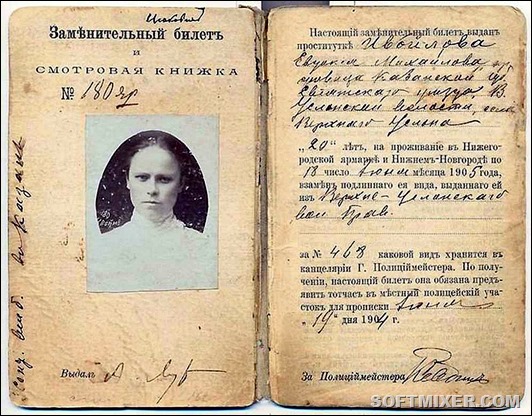 Замѣнительный билетъ
и
СМОТРОВАЯ КНИЖКА
№ 180 яр
Выдалъ
Настоящій замѣнительный билетъ выданъ
проституткѣ Ивойлова
Евдокія Михайлова, кр
Казанской губ
Свіяжскаго уѣзда, В
Услонской волости, села
Верхняго Услона
„20“ лѣтъ, на проживаніе въ Нижего-
родской ярмаркѣ и Нижнемъ-Новгородѣ по
18 число Іюня мѣсяца 1905 года,
взамѣнъ подлиннаго ея вида, выданнаго ей
изъ Верхне-Услонскаго
вол Прав.
за № 468 каковой видъ хранится въ
канцеляріи Г. Полиціймейстера. По полу-
ченіи, настоящій билетъ она обязана предъ-
явить тотчасъ въ мѣстный полицейскій уча-
стокъ для прописки Іюня
„19“ дня 1904 г.
За Полиціймейстера
SOFTMIXER.COM